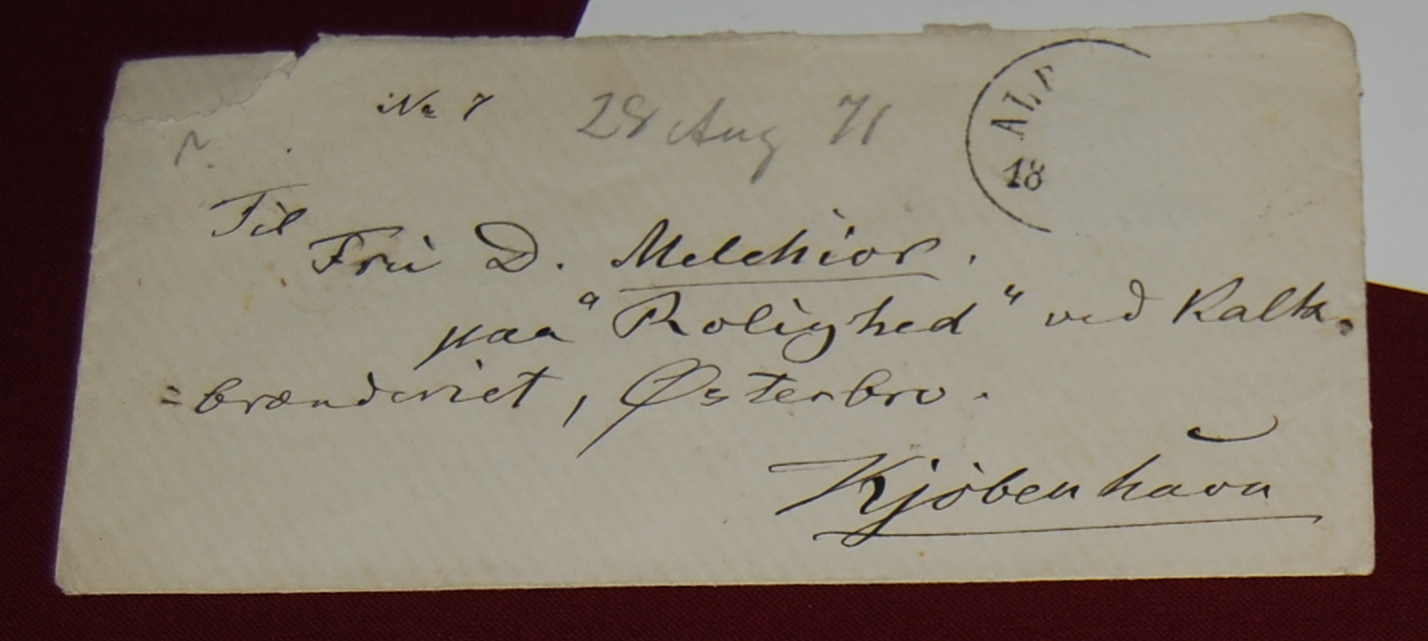 No 7 28 Aug 71
AL
18
Til
Fru D. Melchior.
paa "Rolighed" ved Kalk-
-brænderiet, Østerbro.
Kjöbenhavn